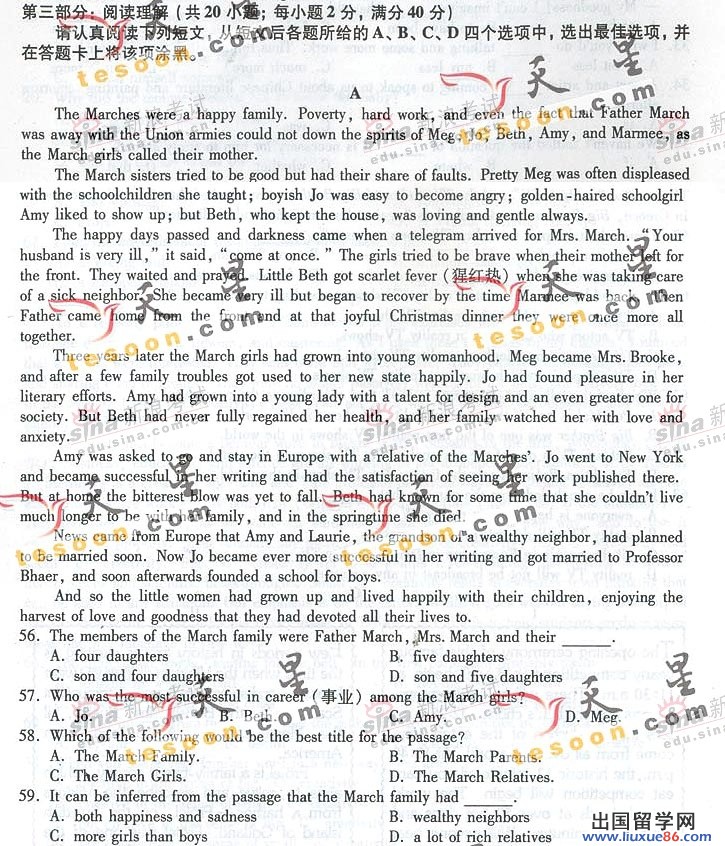 第三部分：阅读理解（共20小题；每小题2分，满分40分）
请认真阅读下列短文，从短文后各题所给的A、B、C、D四个选项中，选出最佳选项，并
在答题卡上将该项涂黑。
A
The Marches were a happy family. Poverty, hard work, and even the fact that Father March
was away with the Union armies could not down the spirits of Meg, Jo, Beth, Amy, and Marmee, as
the March girls called their mother.
The March sisters tried to be good but had their share of faults. Pretty Meg was often displeased
with the schoolchildren she taught; boyish Jo was easy to become angry; golden-haired schoolgirl
Amy liked to show up; but Beth, who kept the house, was loving and gentle always.
The happy days passed and darkness came when a telegram arrived for Mrs. March. “Your
husband is very ill,” it said, “come at once.” The girls tried to be brave when their mother left for
the front. They waited and prayed. Little Beth got scarlet fever (猩红热) when she was taking care
of a sick neighbor. She became very ill but began to recover by the time Marmee was back. Then
Father came home from the front and at that joyful Christmas dinner they were once more all
together.
Three years later the March girls had grown into young womanhood. Meg became Mrs. Brooke,
and after a few family troubles got used to her new state happily. Jo had found pleasure in her
literary efforts. Amy had grown into a young lady with a talent for design and an even greater one for
society. But Beth had never fully regained her health, and her family watched her with love and
anxiety.
Amy was asked to go and stay in Europe with a relative of the Marches'. Jo went to New York
and became successful in her writing and had the satisfaction of seeing her work published there.
But at home the bitterest blow was yet to fall. Beth had known for some time that she couldn't live
much longer to be with her family, and in the springtime she died.
News came from Europe that Amy and Laurie, the grandson of a wealthy neighbor, had planned
to be married soon. Now Jo became ever more successful in her writing and got married to Professor
Bhaer, and soon afterwards founded a school for boys.
And so the little women had grown up and lived happily with their children, enjoying the
harvest of love and goodness that they had devoted all their lives to.
56. The members of the March family were Father March, Mrs. March and their ______.
A. four daughters B. five daughters
C. son and four daughters D. son and five daughters
57. Who was the most successful in career (事业) among the March girls?
A. Jo. B. Beth. C. Amy. D. Meg.
58. Which of the following would be the best title for the passage?
A. The March Family. B. The March Parents.
C. The March Girls. D. The March Relatives.
59. It can be inferred from the passage that the March family had ______.
A. both happiness and sadness B. wealthy neighbors
C. more girls than boys D. a lot of rich relatives
天星
tesoon.com
sina新浪考试
edu.sina.com.cn
出国留学网
www.liuxue86.com